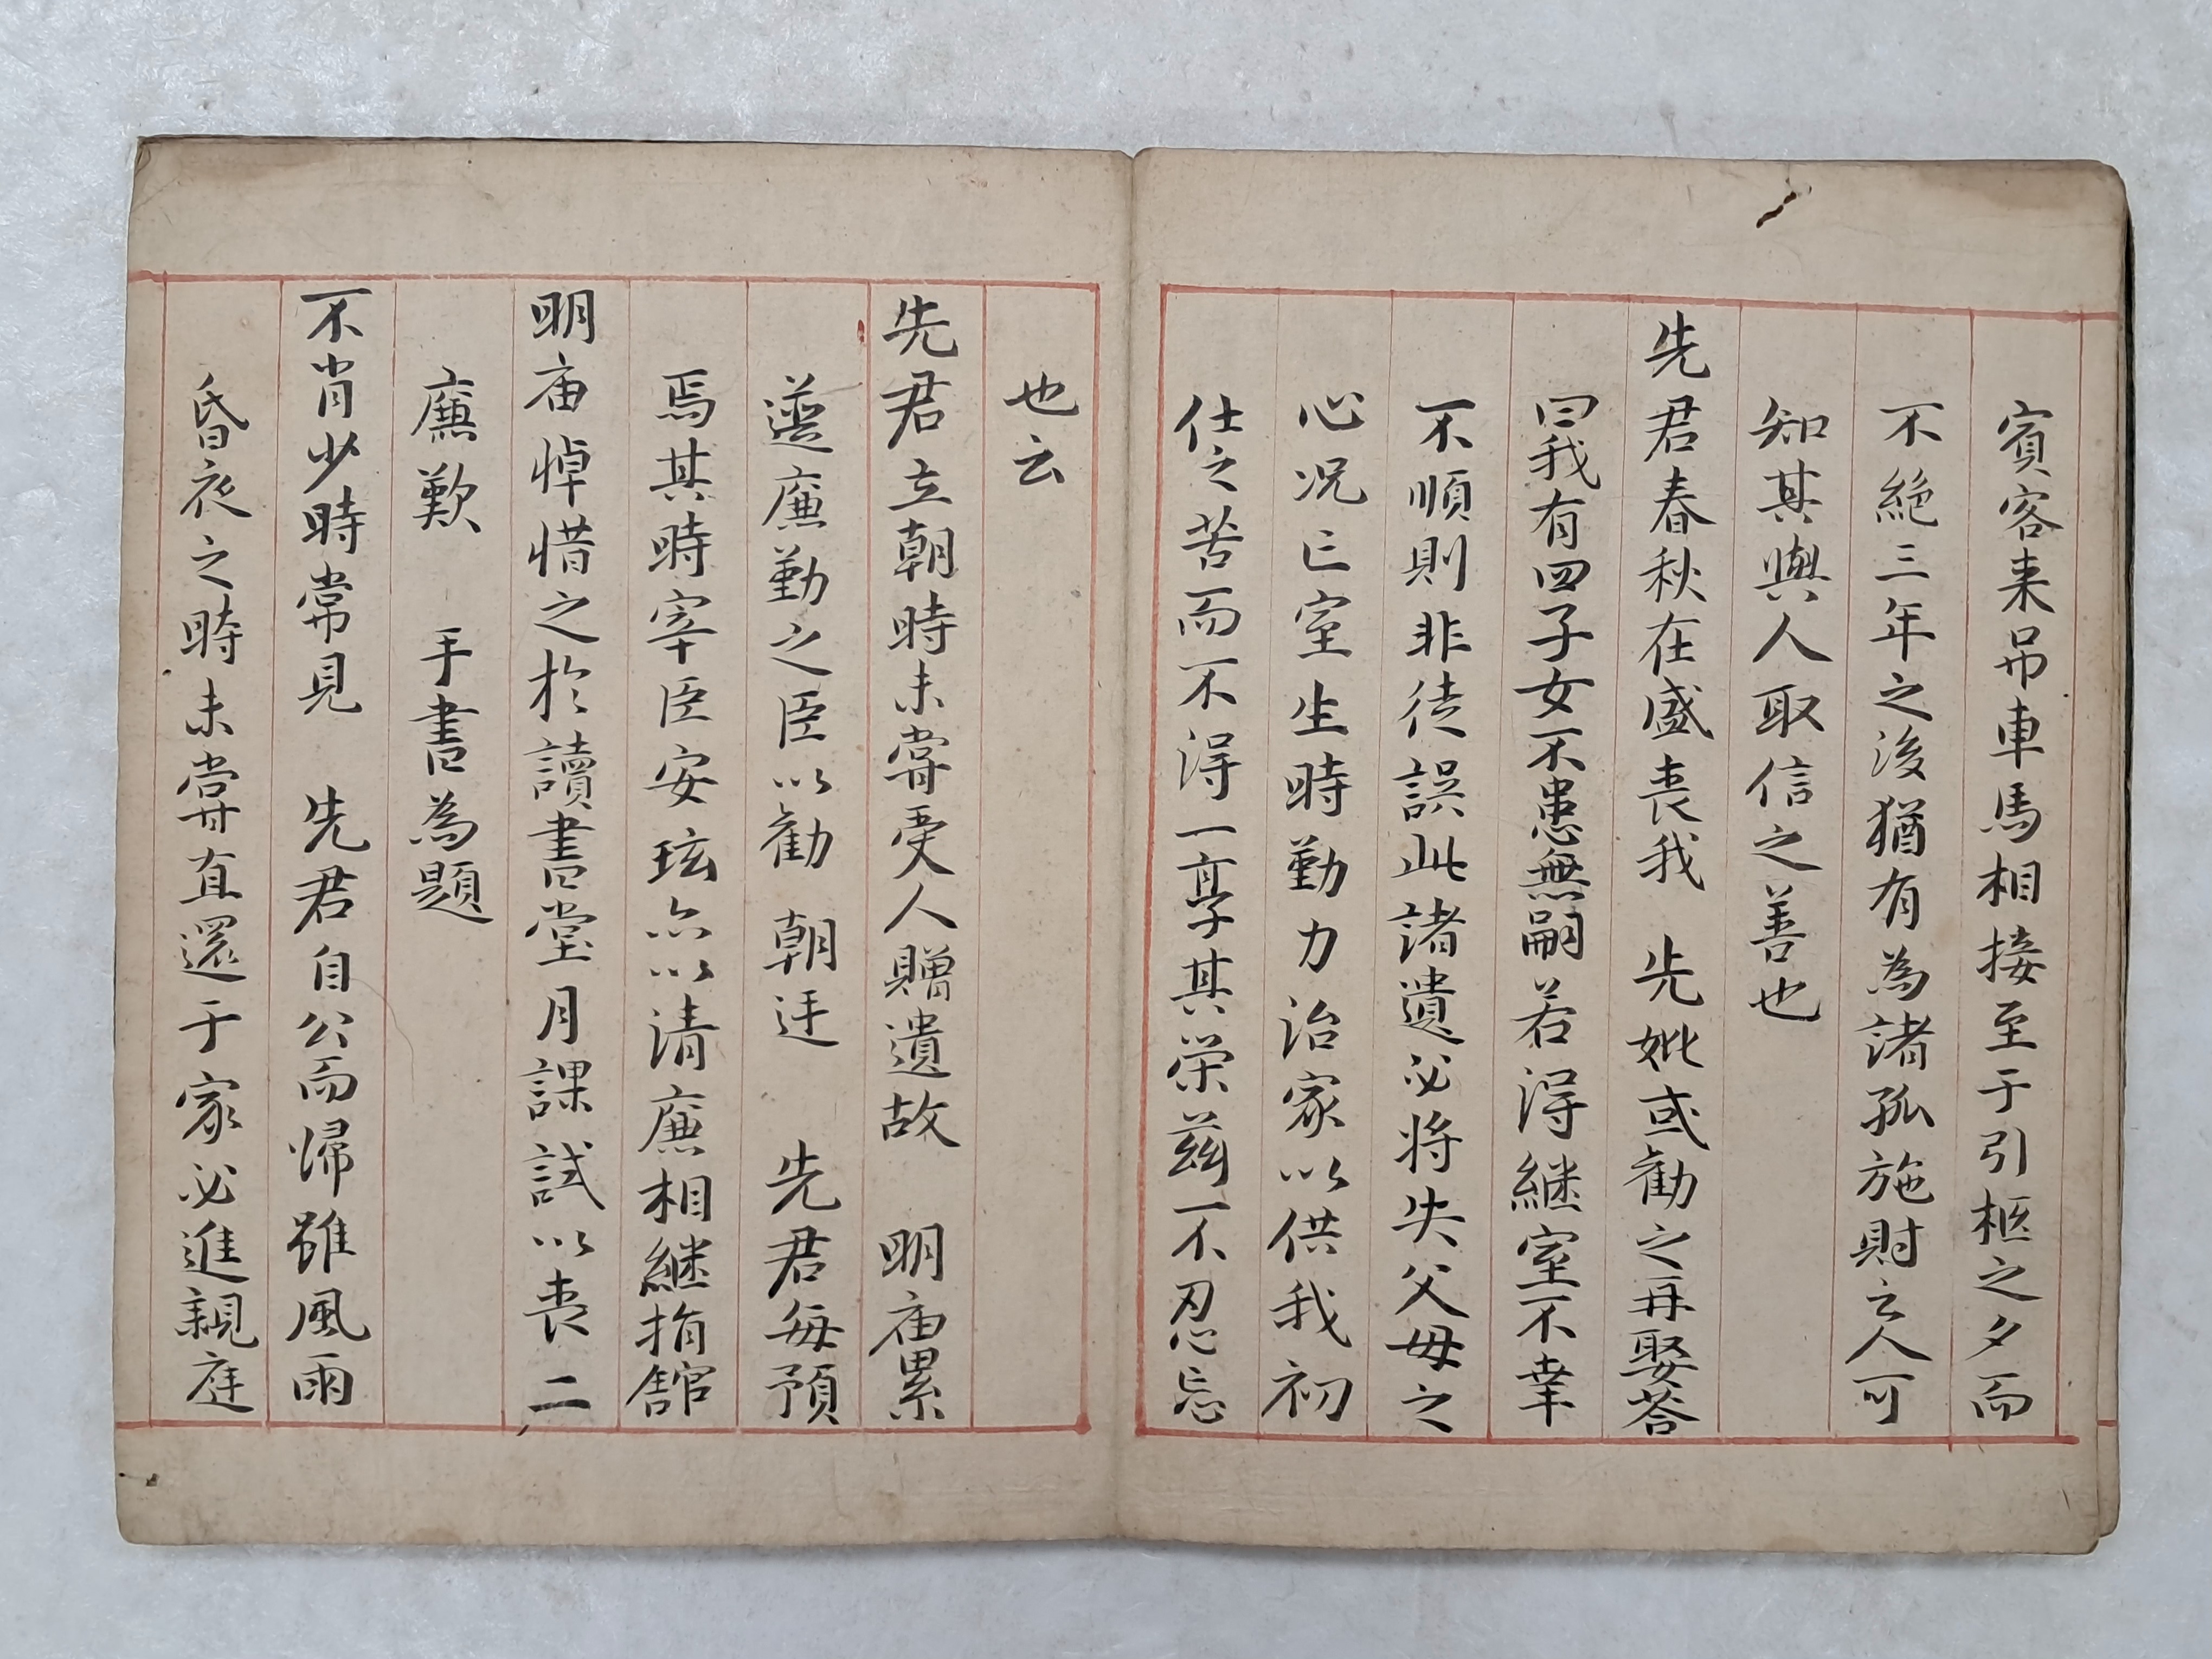 賓客来吊車馬相接至于引柩之夕而
不絶三年之後猶有為諸孤施財之人可
知其與人取信之善也
先君春秋在盛喪我　先妣或勸之再娶荅
曰我有四子女不患無嗣若得継室不幸
不順則非徒誤此諸遺必将失父母之
心况亡室生時勤力治家以供我初
仕之苦而不得一享其榮兹不忍忘
也云
先君立朝時未嘗受人贈遺故　明庙累
選廉勤之臣以勸　朝廷　先君每預
焉其時宰臣安玹亦以清廉相継捐舘
明庙悼惜之於讀書堂月課試以喪二
廉歎　手書為題
不肖少時常見　先君自公而帰雖風雨
昏夜之時未嘗直還于家必進親庭